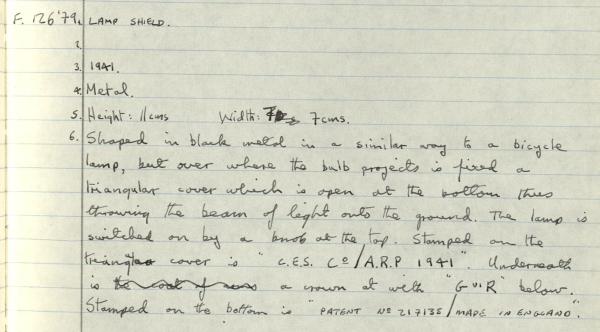 F. 126'79. 1. LAMP SHIELD.
2.
3. 1941.
4. Metal.
5. Height: 11cms Width: 7cms.
6. Shaped in black metal in a similar way to a bicycle
lamp, but over where the bulb projects is fixed a
triangular cover which is open at the bottom thus
throwing the beam of light onto the ground. The lamp is
switched on by a knob at the top. Stamped on the
triang cover is "C.E.S. Cº/A.R.P 1941". Underneath
is the coat of arms a crown at with "G VI R" below.
Stamped on the bottom is "PATENT Nº 217135/MADE IN ENGLAND."